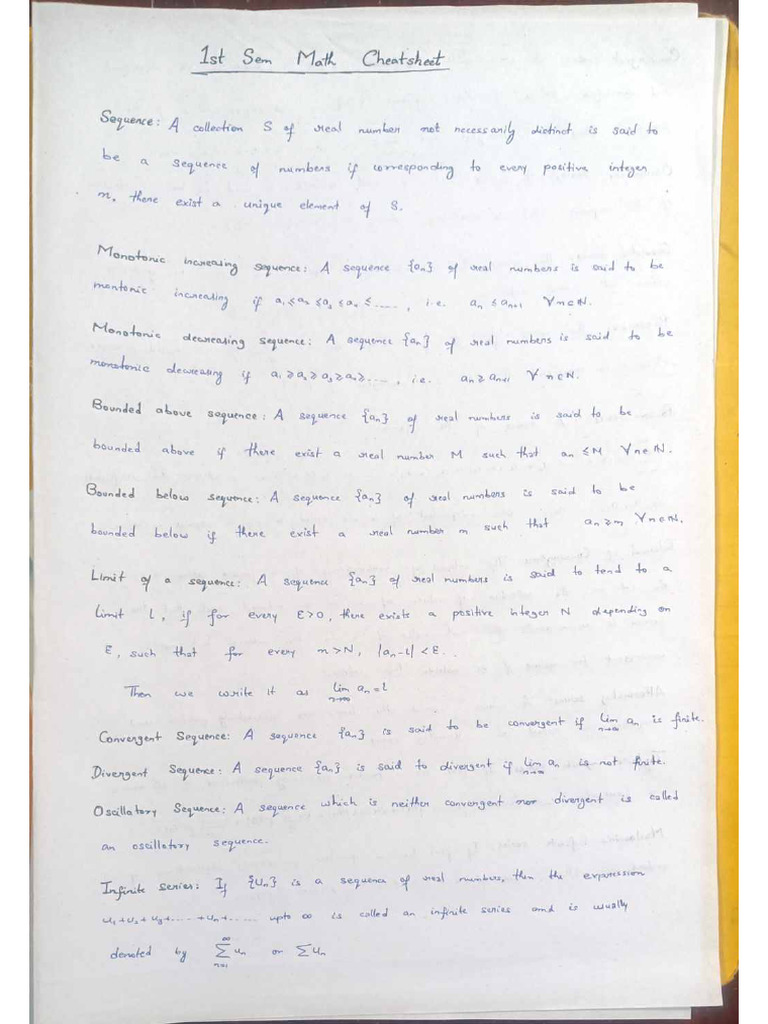 1st Sem Math Cheatsheet
Sequence: A collection S of real number not necessarily distinct is said to
be a sequence of numbers if corresponding to every positive integer
n, there exist a unique element of S.
Monotonic increasing sequence: A sequence {an} of real numbers is said to be
montonic increasing if a1≤a2≤a3≤a4≤....., i.e. an≤an+1 ∀n∈N.
Monotonic decreasing sequence: A sequence {an} of real numbers is said to be
monotonic decreasing if a1≥a2≥a3≥a4≥....., i.e. an≥an+1 ∀n∈N.
Bounded above sequence: A sequence {an} of real numbers is said to be
bounded above if there exist a real number M such that an≤M ∀n∈N.
Bounded below sequence: A sequence {an} of real numbers is said to be
bounded below if there exist a real number m such that an≥m ∀n∈N.
Limit of a sequence: A sequence {an} of real numbers is said to tend to a
limit l, if for every ε>0, there exists a positive integer N depending on
ε, such that for every n>N, |an-l|<ε..
Then we write it as lim n→∞ an=l
Convergent Sequence: A sequence {an} is said to be convergent if lim n→∞ an is finite.
Divergent Sequence: A sequence {an} is said to divergent if lim n→∞ an is not finite.
Oscillatory Sequence: A sequence which is neither convergent nor divergent is called
an oscillatory sequence.
Infinite series: If {Un} is a sequence of real numbers, then the expression
u1+u2+u3+....+un+..... upto ∞ is called an infinite series and is usually
denoted by ∞ Σ n=1 un or Σun